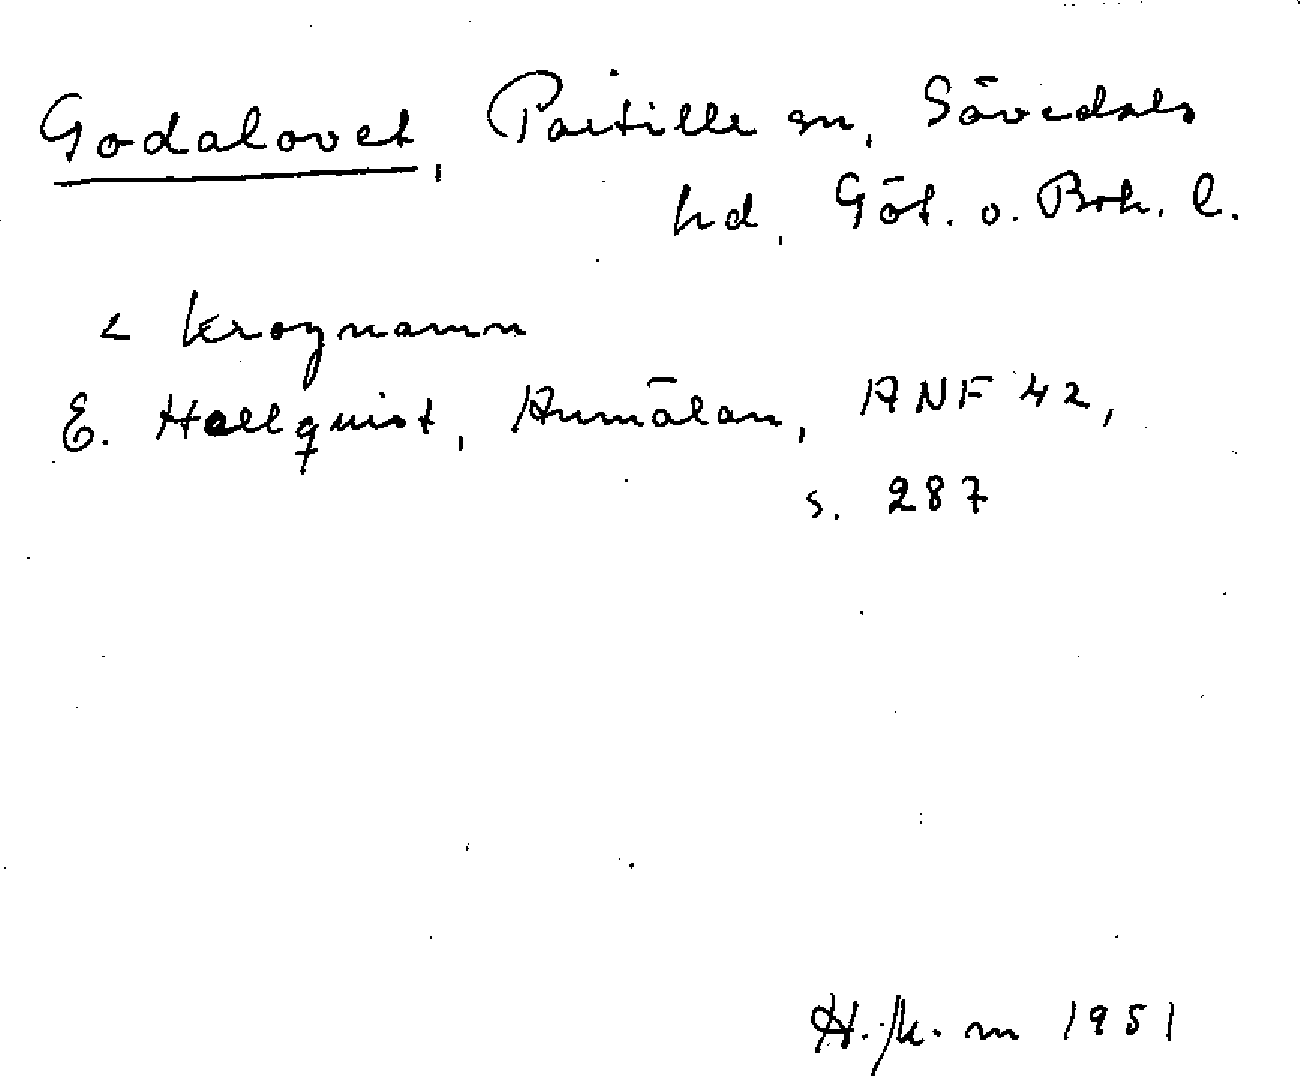 Godalovet, Partille sn, Sävedals
hd, Göt. o. Boh. l.
< krognamn
E. Hellquist, Anmälan, ANF 42,
s. 287
1951